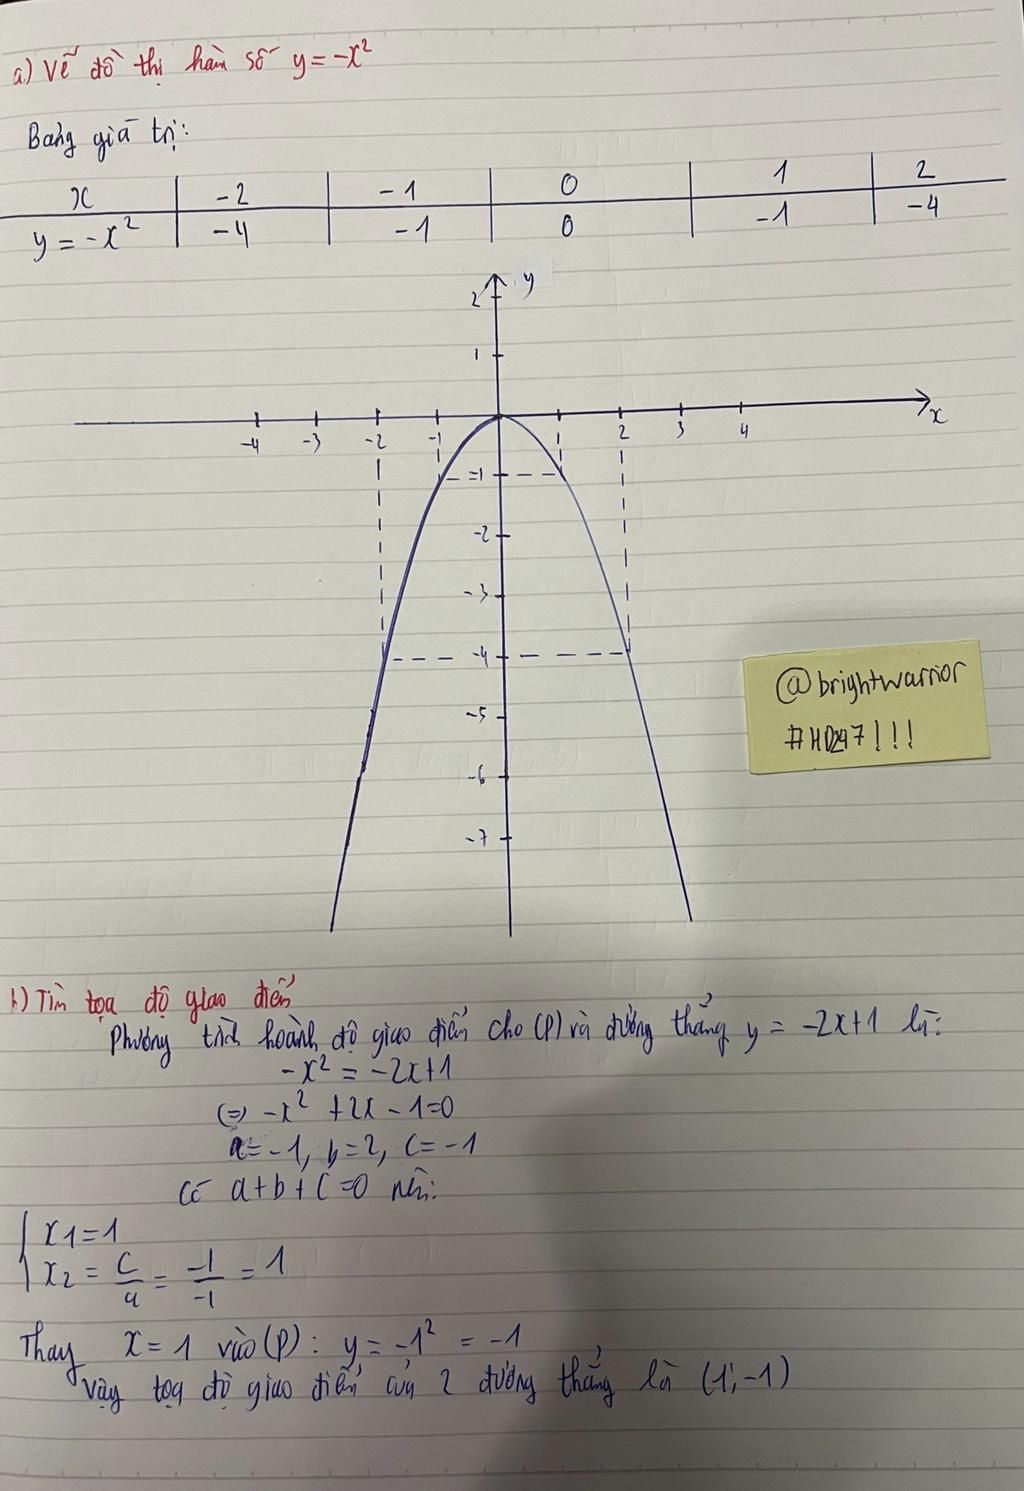 a) Vẽ đồ thị hàm số y = -x²
Bảng giá trị:
x | -2 | -1 | 0 | 1 | 2
y = -x² | -4 | -1 | 0 | -1 | -4
y
2
1
-4 -3 -2 -1 1 2 3 4 x
-1
-2
-3
-4
-5
-6
-7
@brightwarrior
#HD247!!!
b) Tìm tọa độ giao điểm
Phương trình hoành độ giao điểm cho (P) và đường thẳng y = -2x+1 là:
-x² = -2x+1
(=) -x² + 2x - 1 = 0
a = -1, b = 2, c = -1
Có a + b + c = 0 nên:
x1 = 1
x2 = c/a = -1/-1 = 1
Thay x = 1 vào (P): y = -1² = -1
Vậy tọa độ giao điểm của 2 đường thẳng là (1; -1)